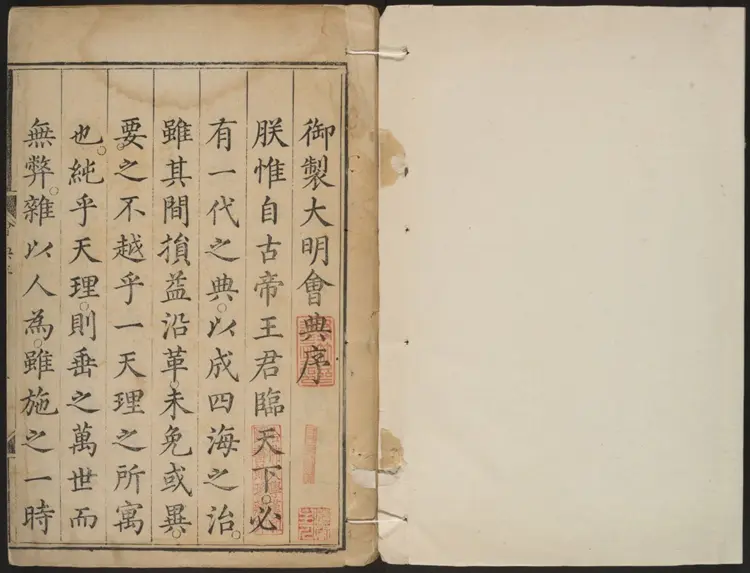 御製大明會典序
朕惟自古帝王君臨天下。必
有一代之典。以成四海之治。
雖其間損益沿革。未免或異。
要之不越乎一天理之所寓
也。純乎天理。則垂之萬世而
無弊。雜以人為。雖施之一時